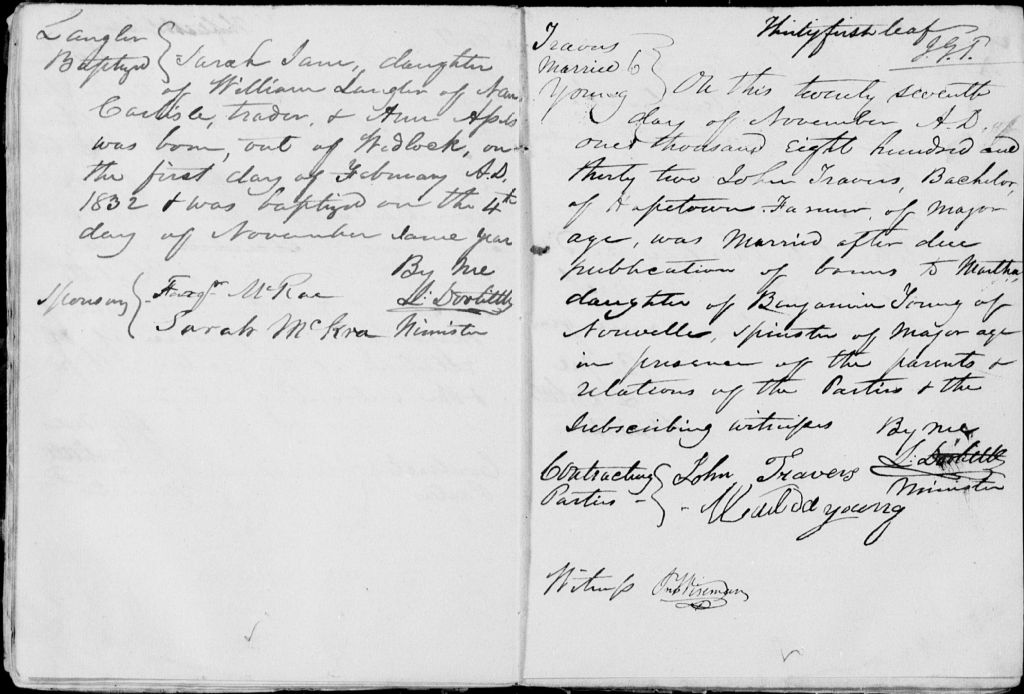 Langler
Baptized } Sarah Jane, daughter
of William Langler of New
Carlisle, trader, & Ann Apsls
was born, out of Wedlock, on
the first day of February A.D.
1832 & was baptized on the 4th
day of November same year
By Me
Sponsors } Farqr McRae L: Doolittle
Sarah McKra Minister
Thirty first leaf
J.G.T.
Travers
Married 6
Young } On this twenty seventh
day of November A.D. of
one thousand eight hundred and
thirty two John Travers, Bachelor,
of Hopetown Farmer, of major
age, was Married after due
publication of banns to Martha,
daughter of Benjamin Young of
Nouvelle, Spinster of Major age
in presence of the parents &
relations of the Parties & the
Subscribing witnesses By me
L: Doolittle
Minister
Contracting } John Travers
Parties - young
Witness Wiseman